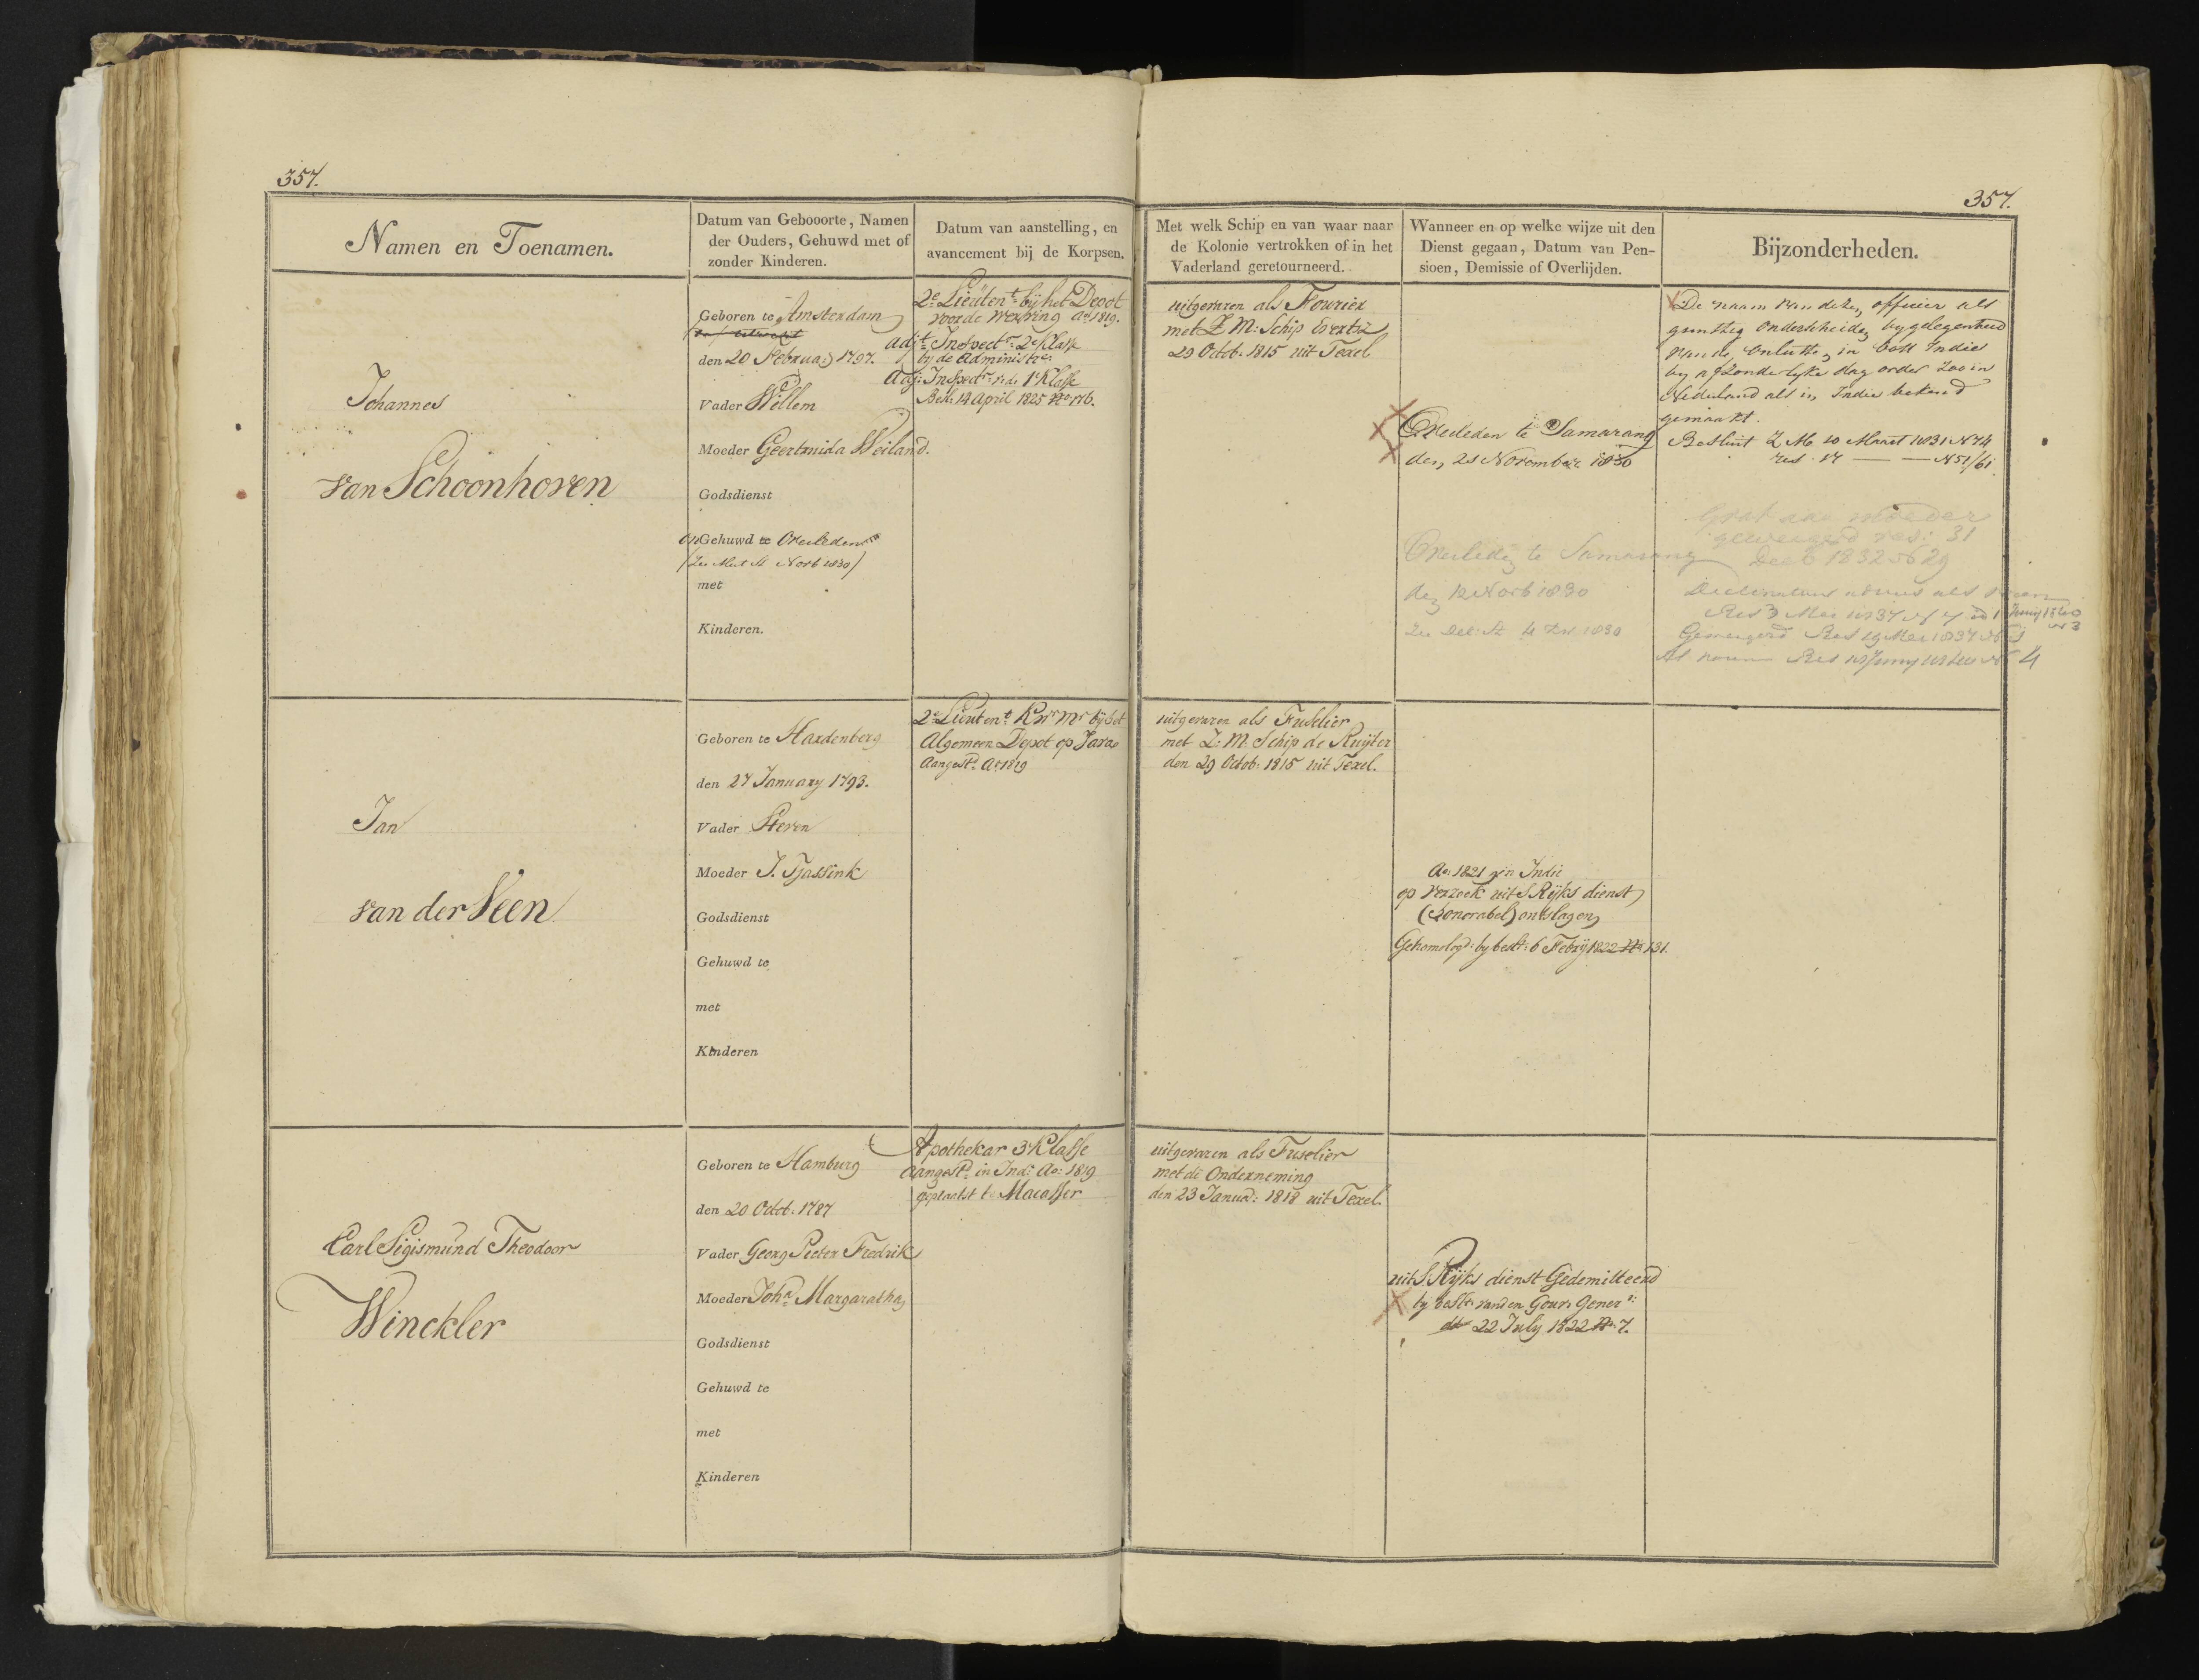 357.
357.
Namen en Toenamen.
Datum van Gebooorte, Namen
der Ouders, Gehuwd met of
zonder Kinderen.
Datum van aanstelling, en
avancement bij de Korpsen.
Met welk Schip en van waar naar
de Kolonie vertrokken of in het
Vaderland geretourneerd.
Wanneer en op welke wijze uit den
Dienst gegaan, Datum van Pen-
sioen, Demissie of Overlijden.
Bijzonderheden.
Johannes
van Schoonhoven
Geboren te Amsterdam
den 20 Februa: 1797.
Vader Willem
Moeder Geertruida Weiland.
Godsdienst
Gehuwd te Overleden
met
Kinderen.
2e Lieutent bij het Depot
voor de werving Ao 1819.
adjt Inspectr 2e Klasse
bij de Administie:
Adj: Inspectr v. d. 1e Klasse
Besl: 14 April 1825 No 176.
uitgevaren als Fourier
met Z M: Schip Evertz
29 Octob. 1815 uit Texel
Overleden te Samarang
den 21 November 1830
Overleden te Samarang
den 12 Novb 1830
De naam van dezen officier als
gunstig onderscheiden bij gelegenheid
van de onlusten in Oost Indie
by afzonderlyke dag order zoo in
Nederland als in Indie bekend
gemaakt.
Besluit Z M 10 Maart 1831 N 74
res. 17 — — N 51/61
moeder
res: 31
Decb 1832 No 29
Jan
van der Veen
Geboren te Hardenberg
den 27 January 1793.
Vader Steven
Moeder J. Tjassink
Godsdienst
Gehuwd te
met
Kinderen
2e Lieutent Kwr Mr bij het
Algemeen Depot op Java
Aangestd Ao 1819
uitgevaren als Fuselier
met Z: M. Schip de Ruijter
den 29 Octob: 1815 uit Texel.
Ao: 1821 in Indie
op verzoek uit S Rijks dienst
(honorabel) ontslagen
Gehomologd: by beslt: 6 Febrij 1822 No 131.
Carl Sigismund Theodoor
Winckler
Geboren te Hamburg
den 20 Octob. 1787
Vader Georg Pieter Fredrik
Moeder Joha Margaratha
Godsdienst
Gehuwd te
met
Kinderen
Apothekar 3e Klasse
Aangestd in Ind: Ao: 1819
geplaatst te Macasser
uitgevaren als Fuselier
met de Onderneming
den 23 Janua: 1818 uit Texel.
uit S. Rijks dienst Gedemitteerd
bij beslt: van den Gouv. Generl:
dd 22 July 1822 No 7.